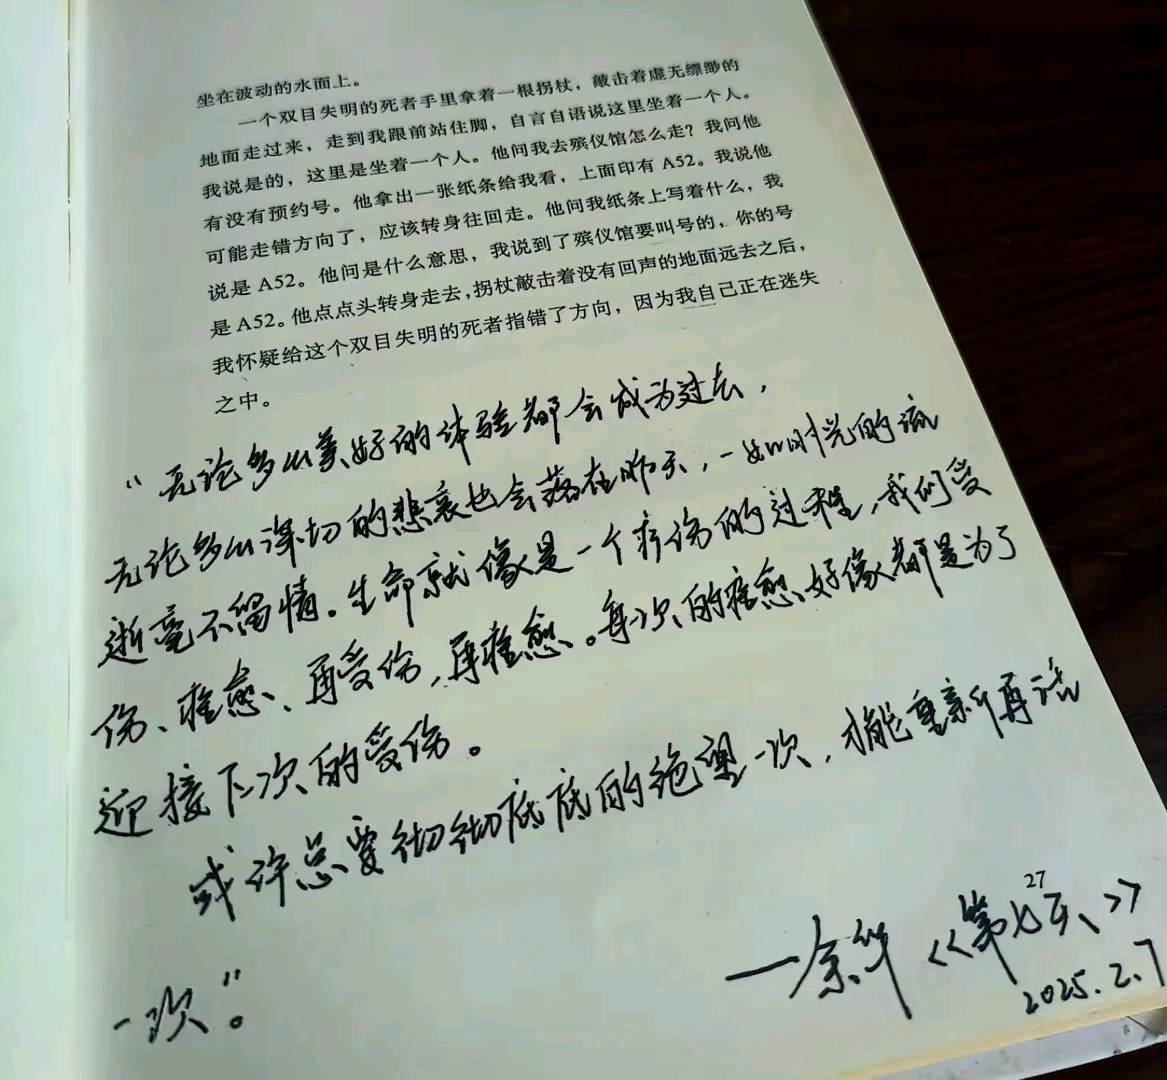 坐在波动的水面上。
一个双目失明的死者手里拿着一根拐杖，敲击着虚无缥缈的
地面走过来，走到我跟前站住脚，自言自语说这里坐着一个人。
我说是的，这里是坐着一个人。他问我去殡仪馆怎么走？我问他
有没有预约号。他拿出一张纸条给我看，上面印有 A52。我说他
可能走错方向了，应该转身往回走。他问我纸条上写着什么，我
说是 A52。他问是什么意思，我说到了殡仪馆要叫号的，你的号
是 A52。他点点头转身走去，拐杖敲击着没有回声的地面远去之后，
我怀疑给这个双目失明的死者指错了方向，因为我自己正在迷失
之中。
“无论多么美好的体验都会成为过去，
无论多么深切的悲哀也会落在昨天，一如时光的流
逝毫不留情。生命就像是一个疗伤的过程，我们受
伤、痊愈、再受伤，再痊愈。每次的痊愈好像都是为了
迎接下次的受伤。
或许总要彻彻底底的绝望一次，才能重新再活
一次”。
27
—余华《第七天》
2025.2.7